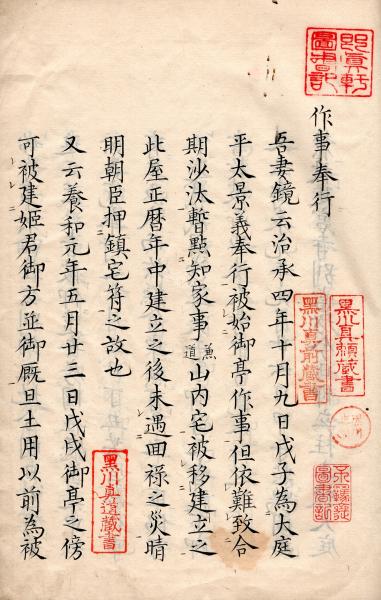 作事奉行
吾妻鏡云治承四年十月九日戊子為大庭
平太景義奉行被始御亭作事但依難致合
期沙汰暫點知家事兼道山内宅被移建立之
此屋正暦年中建立之後未遇回祿之災晴
明朝臣押鎮宅符之故也
又云養和元年五月廿三日戊戌御亭之傍
可被建姫君御方並御厩且土用以前為被
黒川真頼蔵書
黒川真前蔵書
黒川真道蔵書